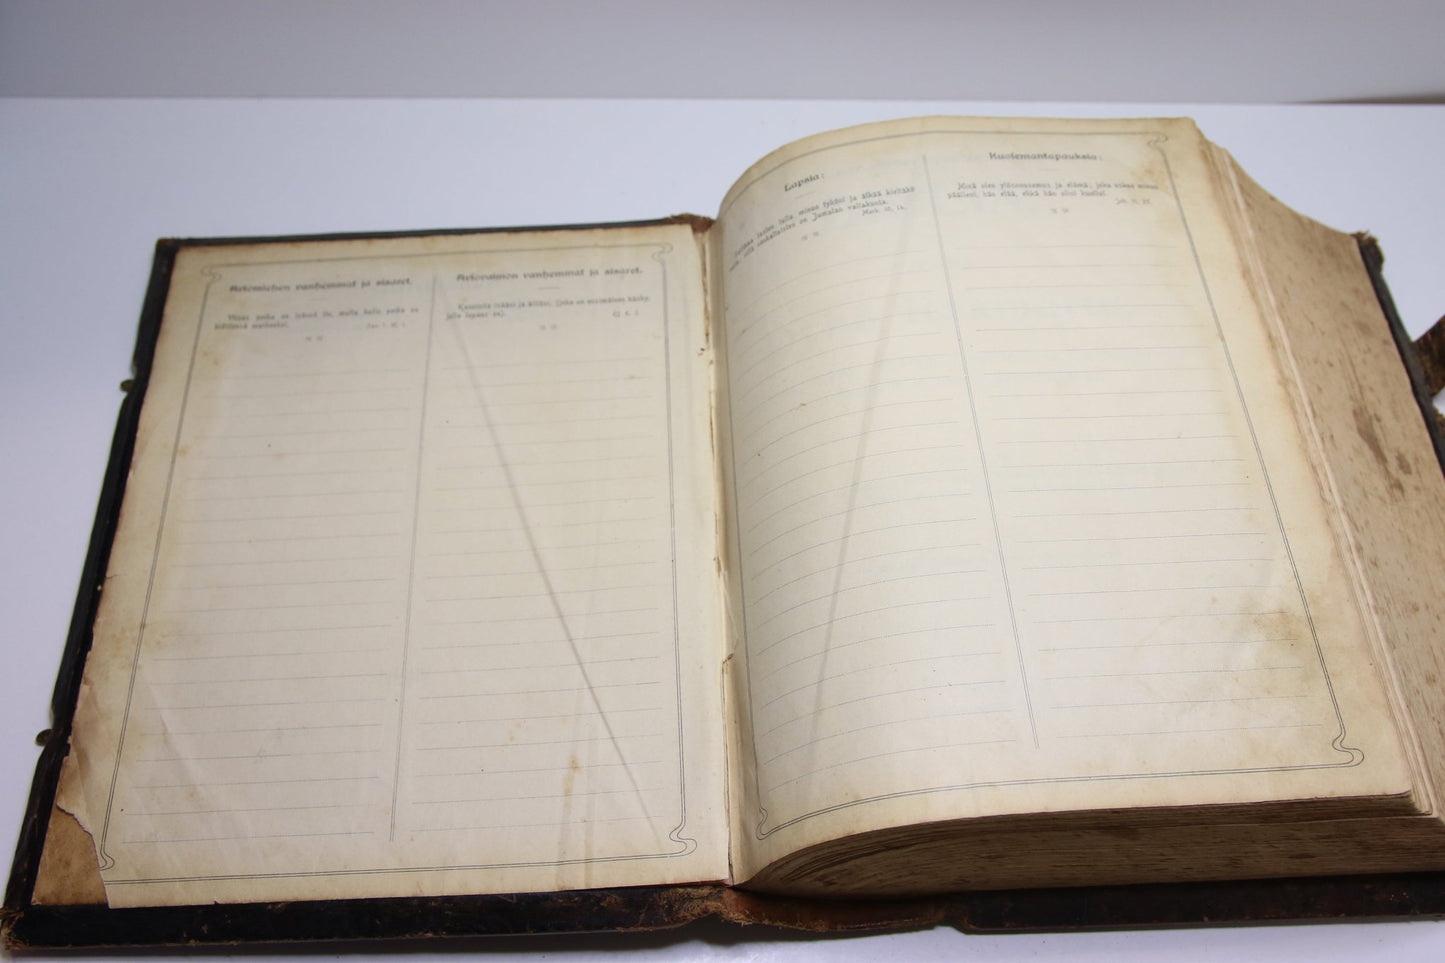 Aviomiehen vanhemmat ja sisaret.
Viisas poika on isänsä ilo, mutta hullu poika on
äitillensä murheeksi.
Aviovaimon vanhemmat ja sisaret.
Kunnioita isääsi ja äitiäsi, (joka on ensimäinen käsky,
jolla lupaus on).
Lapsia:
Sallikaa lasten tulla minun tyköni ja älkää kieltäkö
heitä, sillä senkaltaisten on Jumalan valtakunta.
Mark. 10, 14.
Kuolemantapauksia:
Minä olen ylösnousemus ja elämä; joka uskoo minun
päälleni, hän elää, ehkä hän olisi kuollut.
Joh. 11, 25.